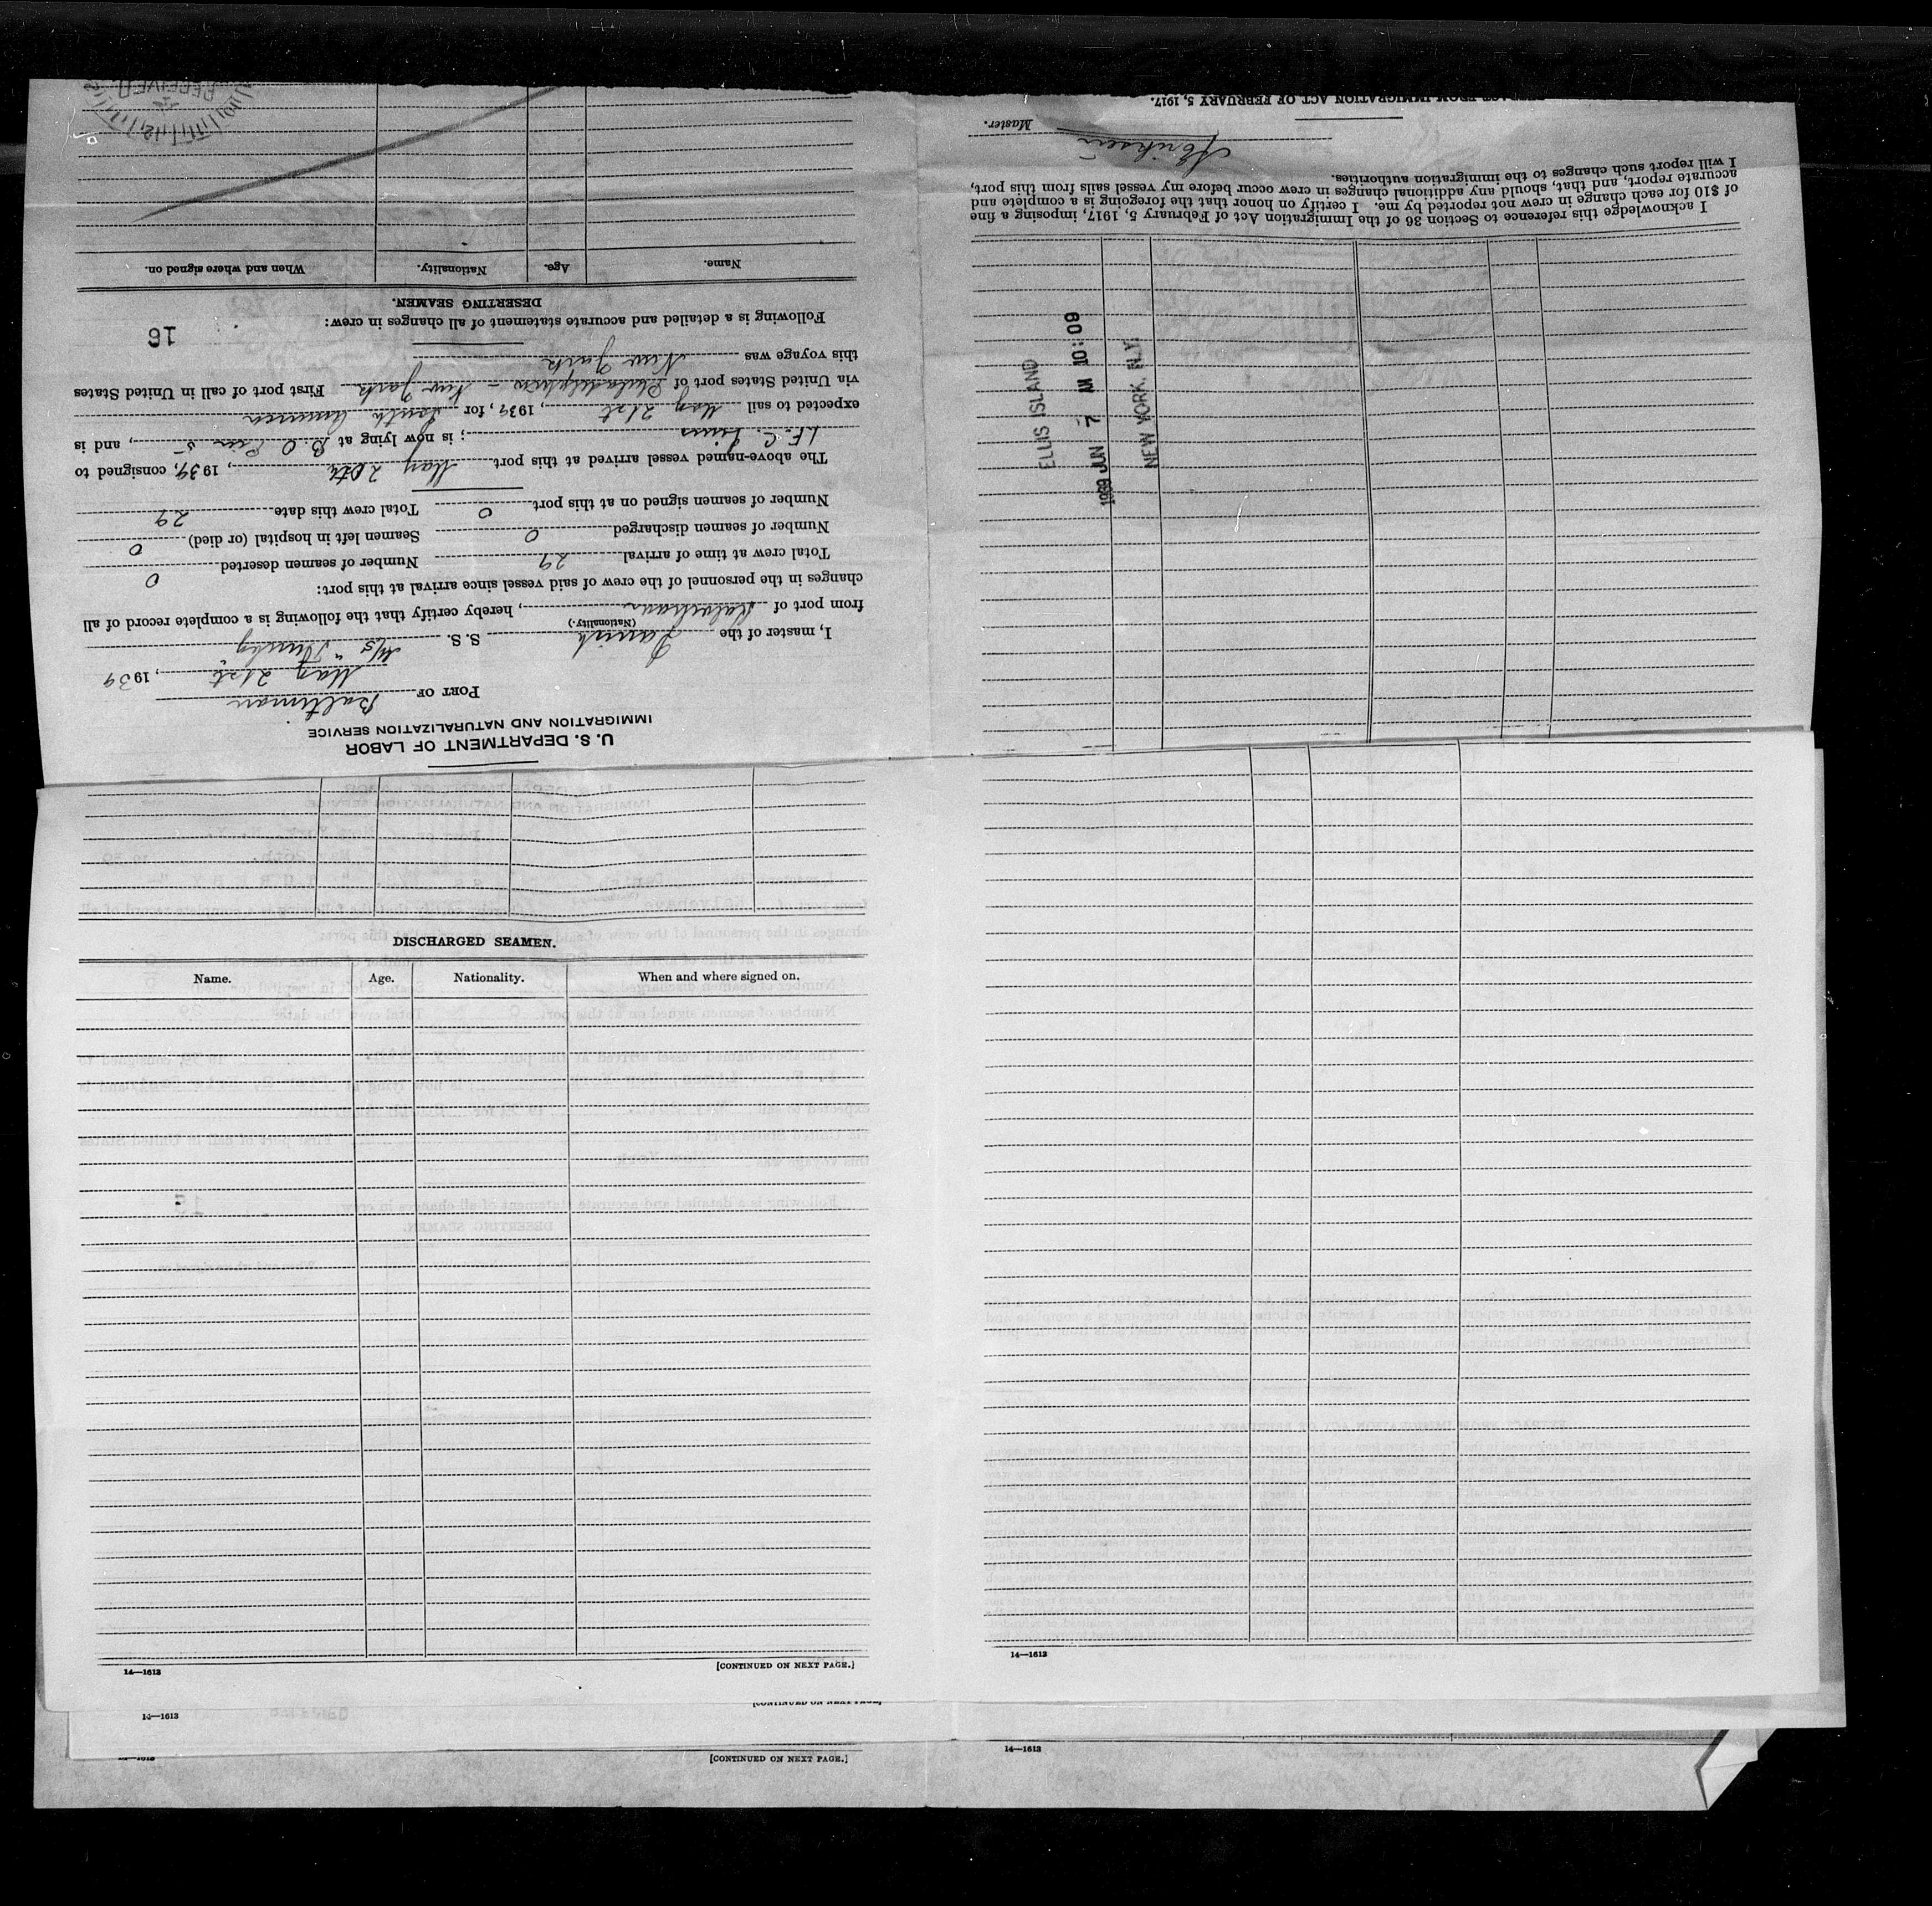 U. S. DEPARTMENT OF LABOR
IMMIGRATION AND NATURALIZATION SERVICE
PORT OF Baltimore
May 21st, 1939
I, master of the Danish S. S. M/S
(Nationality.)
from port of, hereby certify that the following is a complete record of all
changes in the personnel of the crew of said vessel since arrival at this port:
Total crew at time of arrival 29 Number of seamen deserted 0
Number of seamen discharged 0 Seamen left in hospital (or died) 0
Number of seamen signed on at this port 0 Total crew this date 29
The above-named vessel arrived at this port May 20th, 1939, consigned to
I.F.C. Lines; is now lying at B. O. Pier 5, and is
expected to sail May 21st, 1939, for South America
via United States port of Philadelphia – New York First port of call in United States
this voyage was New York
Following is a detailed and accurate statement of all changes in crew:
16
DESERTING SEAMEN.
Name. Age. Nationality. When and where signed on.
RECEIVED
ELLIS ISLAND
1939 JUN 7 AM 10:09
NEW YORK, N.Y.
I acknowledge this reference to Section 36 of the Immigration Act of February 5, 1917, imposing a fine
of $10 for each change in crew not reported by me. I certify on honor that the foregoing is a complete and
accurate report, and that, should any additional changes in crew occur before my vessel sails from this port,
I will report such changes to the immigration authorities.
Master.
FROM IMMIGRATION ACT OF FEBRUARY 5, 1917.
DISCHARGED SEAMEN.
Name. Age. Nationality. When and where signed on.
14—1613 [CONTINUED ON NEXT PAGE.]
14—1613
[CONTINUED ON NEXT PAGE.]
14—1613
[CONTINUED ON NEXT PAGE.]
14—1613